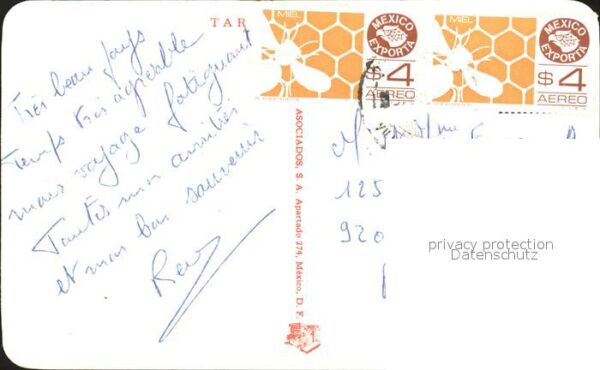 TAR
Très beau pays
Temps très agréable
mais voyage fatiguant
Toutes mes amitiés
et mon bon souvenir
ASOCIADOS, S. A. Apartado 274, México, D. F.
MIEL
MEXICO
EXPORTA
$4
AEREO
MIEL
MEXICO
EXPORTA
$4
AEREO
125
920
privacy protection
Datenschutz